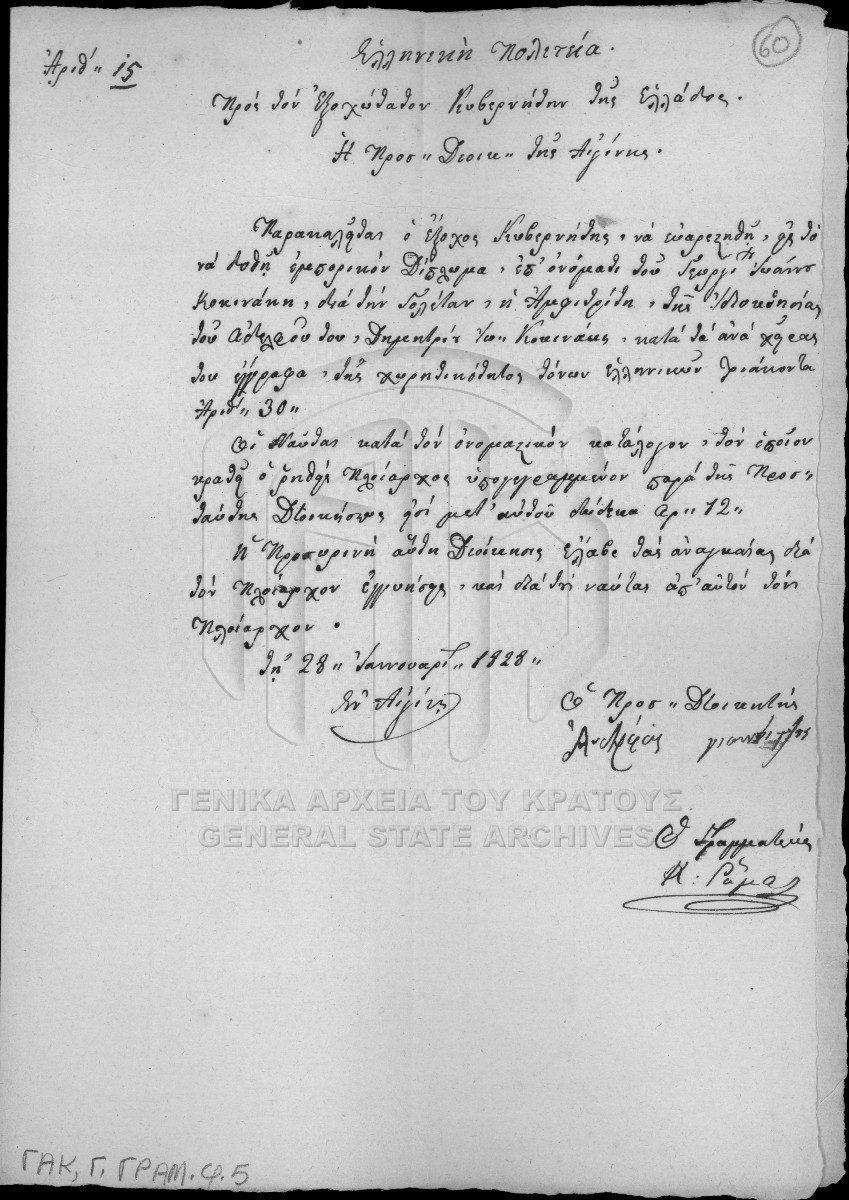 60
Ἑλληνικὴ Πολιτεία.
Ἀριθ" 15
Πρὸς τὸν Ἐξοχώτατον Κυβερνήτην τῆς Ἑλλάδος.
Ἡ Προσ" Διοικ" τῆς Αἰγίνης.
Παρακαλεῖται ὁ ἔξοχος Κυβερνήτης, νὰ εὐαρεστηθῇ, εἰς τὸ
νὰ δοθῇ ἐμπορικὸν Δίπλωμα, ἐπ' ὀνόματι τοῦ Γεωργί Ἰωάννου
Κοκινάκη, διὰ τὴν Γολέταν, ἡ Ἀμφιτρίτη, τῆς ἰδιοκτησίας
τοῦ ἀδελφοῦ του, Δημητρίου Ἰω" Κοκινάκη, κατὰ τὰ ἀνὰ χεῖρας
του ἔγγραφα, τῆς χωρητικότητος τόνων ἑλληνικῶν τριάκοντα
Ἀριθ" 30"
Οἱ Ναῦται κατὰ τὸν ὀνομαστικὸν κατάλογον, τὸν ὁποῖον
κρατεῖ ὁ ῥηθεὶς Πλοίαρχος ὑπογεγραμμένον παρὰ τῆς Προσ"
ταύτης Διοικήσεως εἰσὶ μετ' αὐτοῦ δώδεκα αρ" 12"
Ἡ Προσωρινὴ αὕτη Διοίκησις ἔλαβε τὰς ἀναγκαίας διὰ
τὸν Πλοίαρχον ἐγγυήσεις, καὶ διὰ τοὺς ναύτας ἀπ' αὐτὸν τὸν
Πλοίαρχον.
τῇ 28" Ἰαννουαρί" 1828"
Ἐν Αἰγίνῃ
Ὁ Προσ" Διοικητὴς
ΓΕΝΙΚΑ ΑΡΧΕΙΑ ΤΟΥ ΚΡΑΤΟΥΣ
GENERAL STATE ARCHIVES
Ὁ Γραμματεὺς
Κ: Ῥώμας
ΓΑΚ, Γ. ΓΡΑΜ. φ. 5